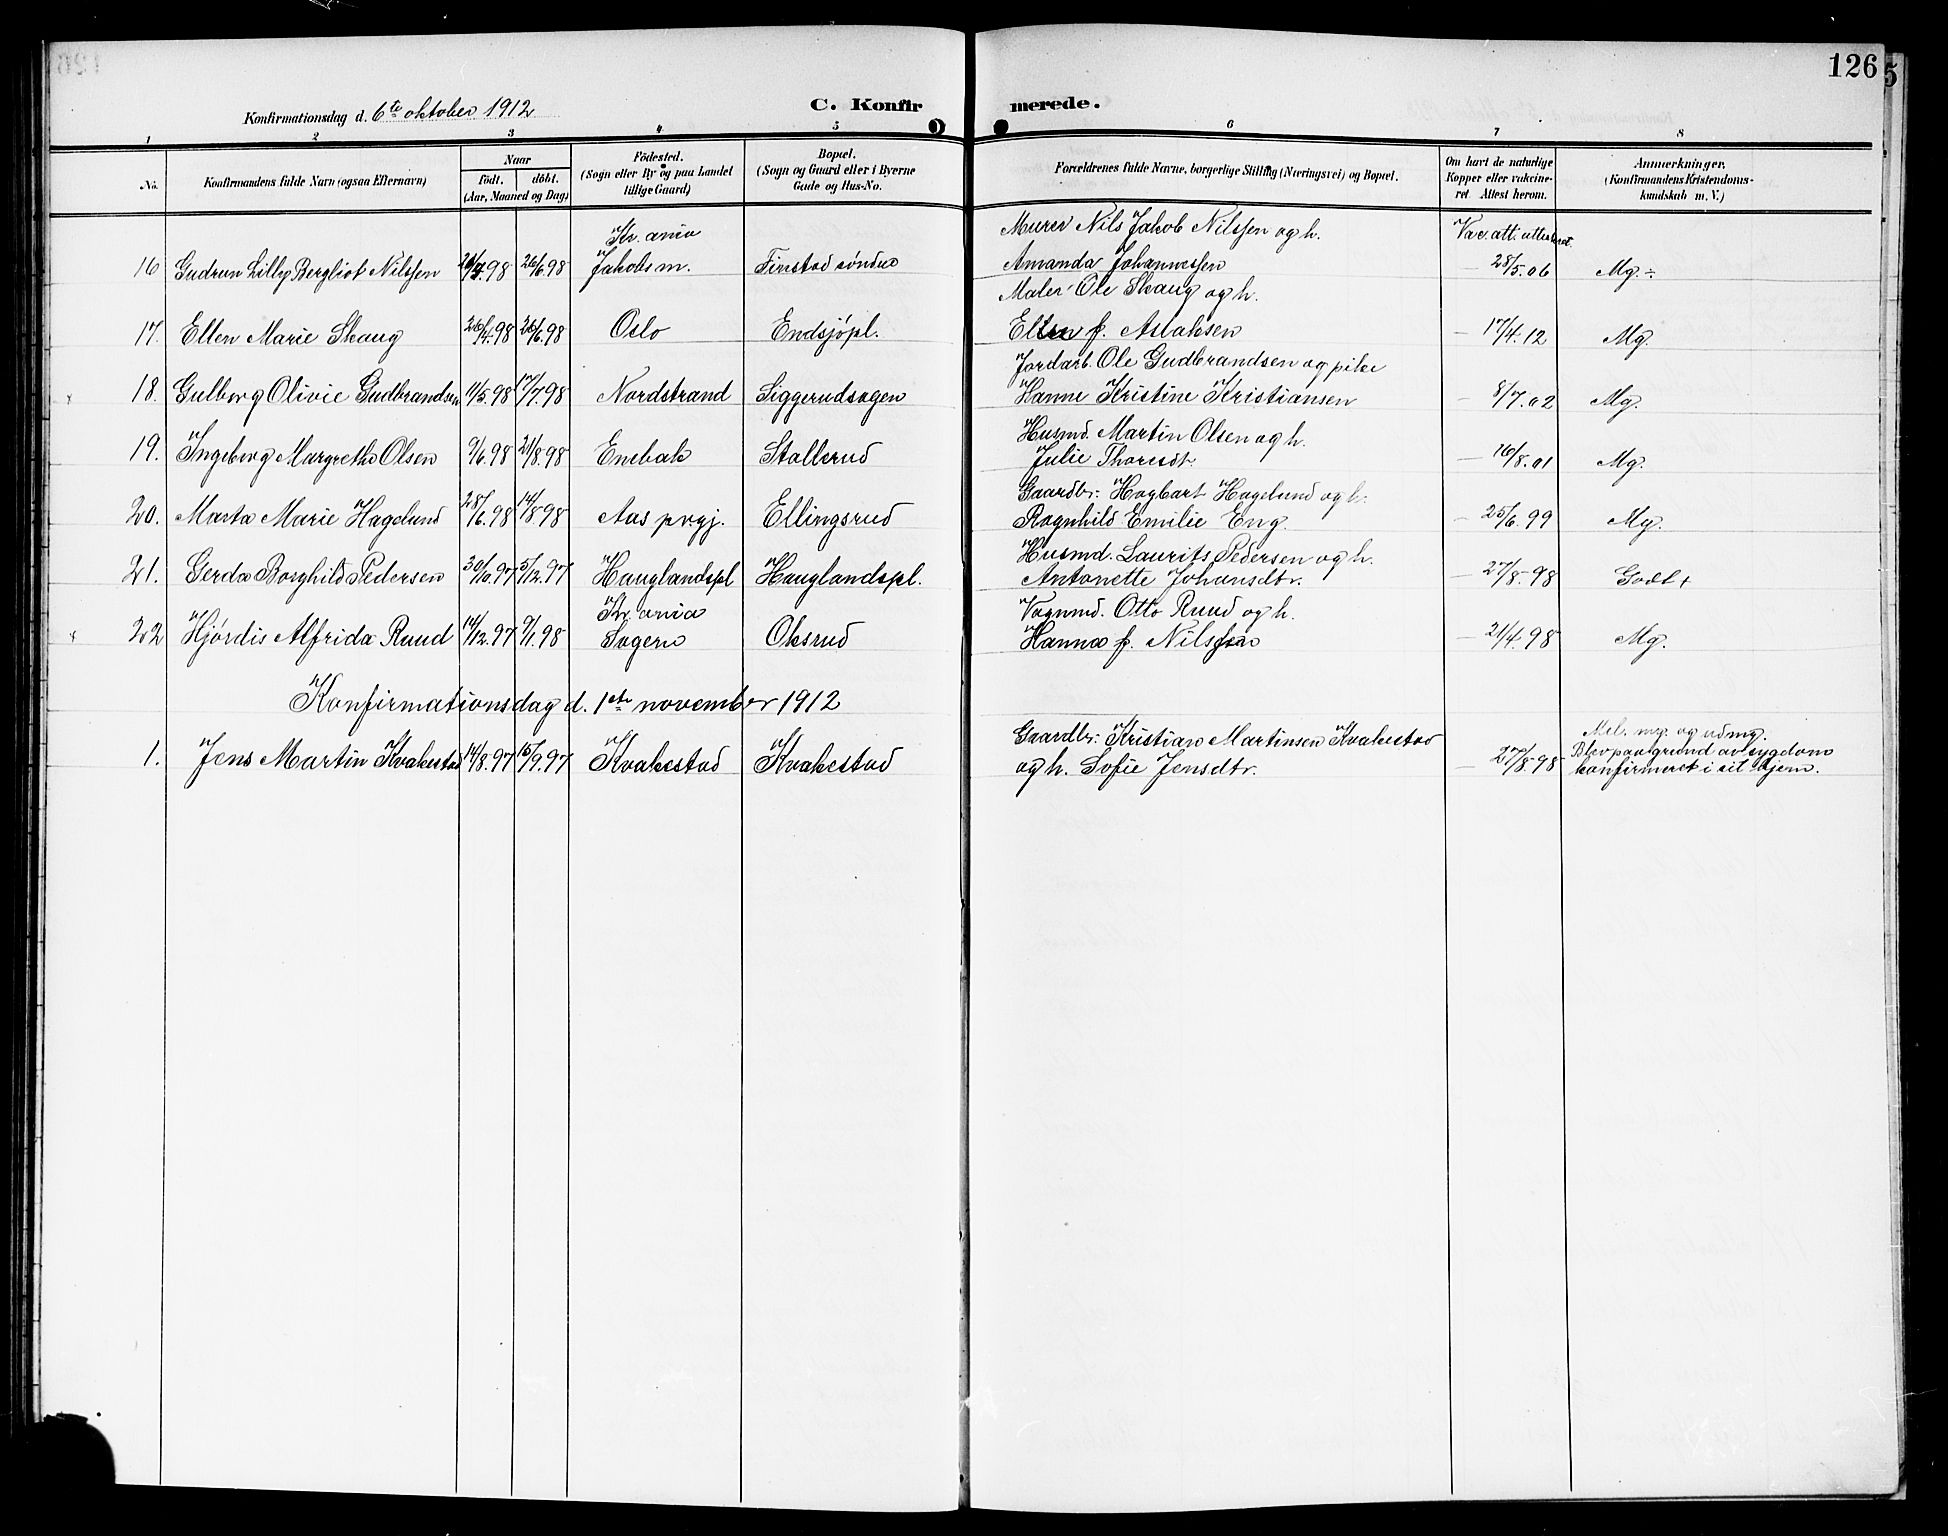 126
5
Konfirmationsdag d. 6te oktober 1912
C. Konfirmerede.
1 2 3 4 5 6 7 8
No.
Konfirmandens fulde Navn (ogsaa Efternavn)
Naar
födt. döbt.
(Aar, Maaned og Dag)
Födested.
(Sogn eller By og paa Landet
tillige Gaard)
Bopæl.
(Sogn og Gaard eller i Byerne
Gade og Hus-No.
Forældrenes fulde Navne, borgerlige Stilling (Næringsvei) og Bopæl.
Om havt de naturlige
Kopper eller vakcine-
ret Attest herom.
Anmærkninger.
(Konfirmandens Kristendoms-
kundskab m. V.)
Kr.ania Murer Nils Jakob Nilssen og h. Vac. att.
16 Gudrun Lilly Bergliot Nilssen 26/6.98 Jakobs m. Finstad söndre Amanda Johannessen – 28/5.06 Mg. ÷
Maler Ole Skaug og h.
17. Ellen Marie Skaug 26/4.98 26/6.98 Oslo Endsjøpl. Ellen f. Aslaksen – 17/4.12 Mg.
Jordarb. Ole Gudbrandsen og pike
x 18. Gulborg Olivie Gudbrandsen 11/5.98 17/7.98 Nordstrand Siggerudsagen Hanne Kristine Kristiansen – 8/7.02 Mg.
Husmd. Martin Olsen og h.
19. Ingeborg Margrethe Olsen 9/6.98 21/8.98 Enebak Stallerud Julie Thoresdt. – 16/8.01 Mg.
Gaardbr. Hagbart Hagelund og h.
20. Marta Marie Hagelund 28/6.98 14/8.98 Aas prgj. Ellingsrud Ragnhild Emilie Eng. – 25/6.99 Mg.
Husmd. Laurits Pedersen og h.
21. Gerda Borghild Pedersen 30/10.97 5/12.97 Hauglandspl Hauglandspl. Antonette Johansdtr. – 27/8.98 Godt +
Kr.ania Vognmd. Otto Ruud og h.
x 22 Hjørdis Alfrida Ruud 14/12.97 9/1.98 Sagene Oksrud Hanna f. Nilssen – 21/4.98 Mg.
Konfirmationsdag d. 1ste november 1912
Gaardbr: Kristian Martinsen Kvakestad Mel. mg. og udmg.
1. Jens Martin Kvakestad 14/8.97 15/9.97 Kvakestad Kvakestad og h. Sofie Jensdtr. – 27/8.98 Blev paa grund av sygdom
konfirmeret i sit hjem.